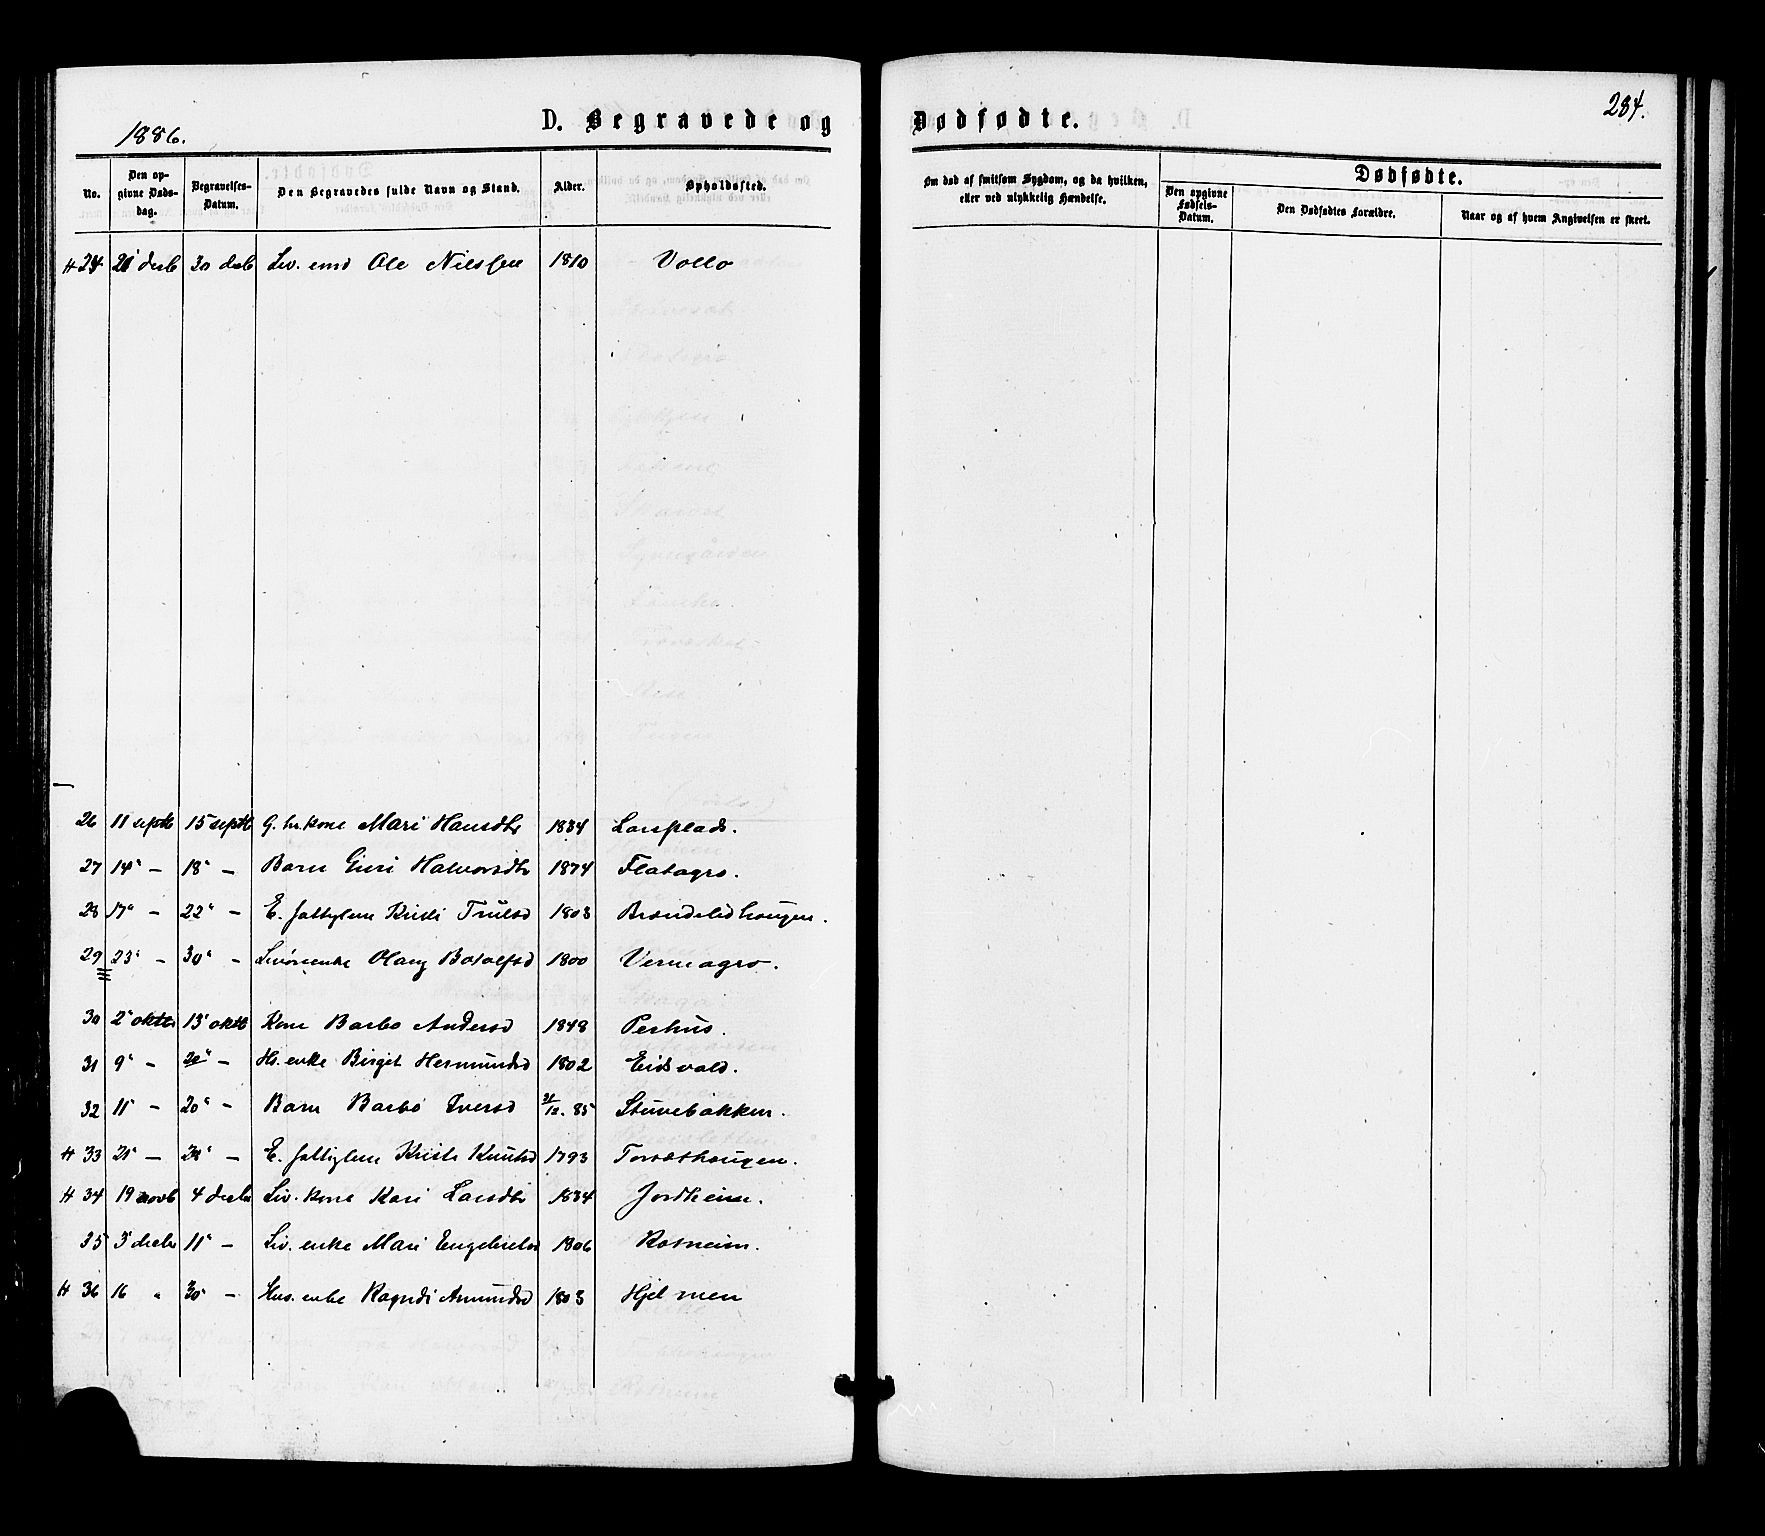 1886.
D. Begravede og Dødfødte.
284.
No. | Den opgivne Døds-dag. | Begravelses-Datum. | Den Begravedes fulde Navn og Stand. | Alder. | Opholdssted. | Om død af smitsom Sygdom, og da hvilken, eller ved ulykkelig Hændelse. | Dødfødte. | Den opgivne Fødsels-Datum. | Den Dødfødtes Forældre. | Naar og af hvem Angivelsen er skeet.
H 24 | decb | 30 decb | Lev. emd Ole Nilssen | 1810 | Vollo
26 | 11 septb | 15 septb | G. br. kone Mari Hansdtr | 1834 | Larsplads.
27 | 14" — | 18" — | Barn Guri Halvorsdtr | 1874 | Flatagro.
28 | 17" — | 22" — | E. fattiglem Kristi Trulsd | 1803 | Brændelidhaugen.
29 | 23" — | 30" — | enke Olaug Botolfsd | 1800 | Vermagro.
30 | 2" oktbr | 13" oktb | Kone Barbo Andersd | 1848 | Perhus.
31 | 9" — | 20" — | Hs. enke Birget Hermundsd | 1802 | Eidsvold.
32 | 11" — | 20" — | Barn Barbo Iversd | 21/12. 85 | Stuvebakken.
H 33 | 21" — | — | E. fattiglem Kristi Knutsd | 1793 | Torsethaugen.
H 34 | 19 novb | 4 decbr | Lev. kone Kari Larsdtr | 1834 | Jordheim.
35 | 3" decbr | 11" — | Lev. enke Mari Engebretsd | 1806 | Rotneim.
H 36 | 16 " | 30" — | Hus. enke Ragndi Amundsd | 1803 | Hjelmen